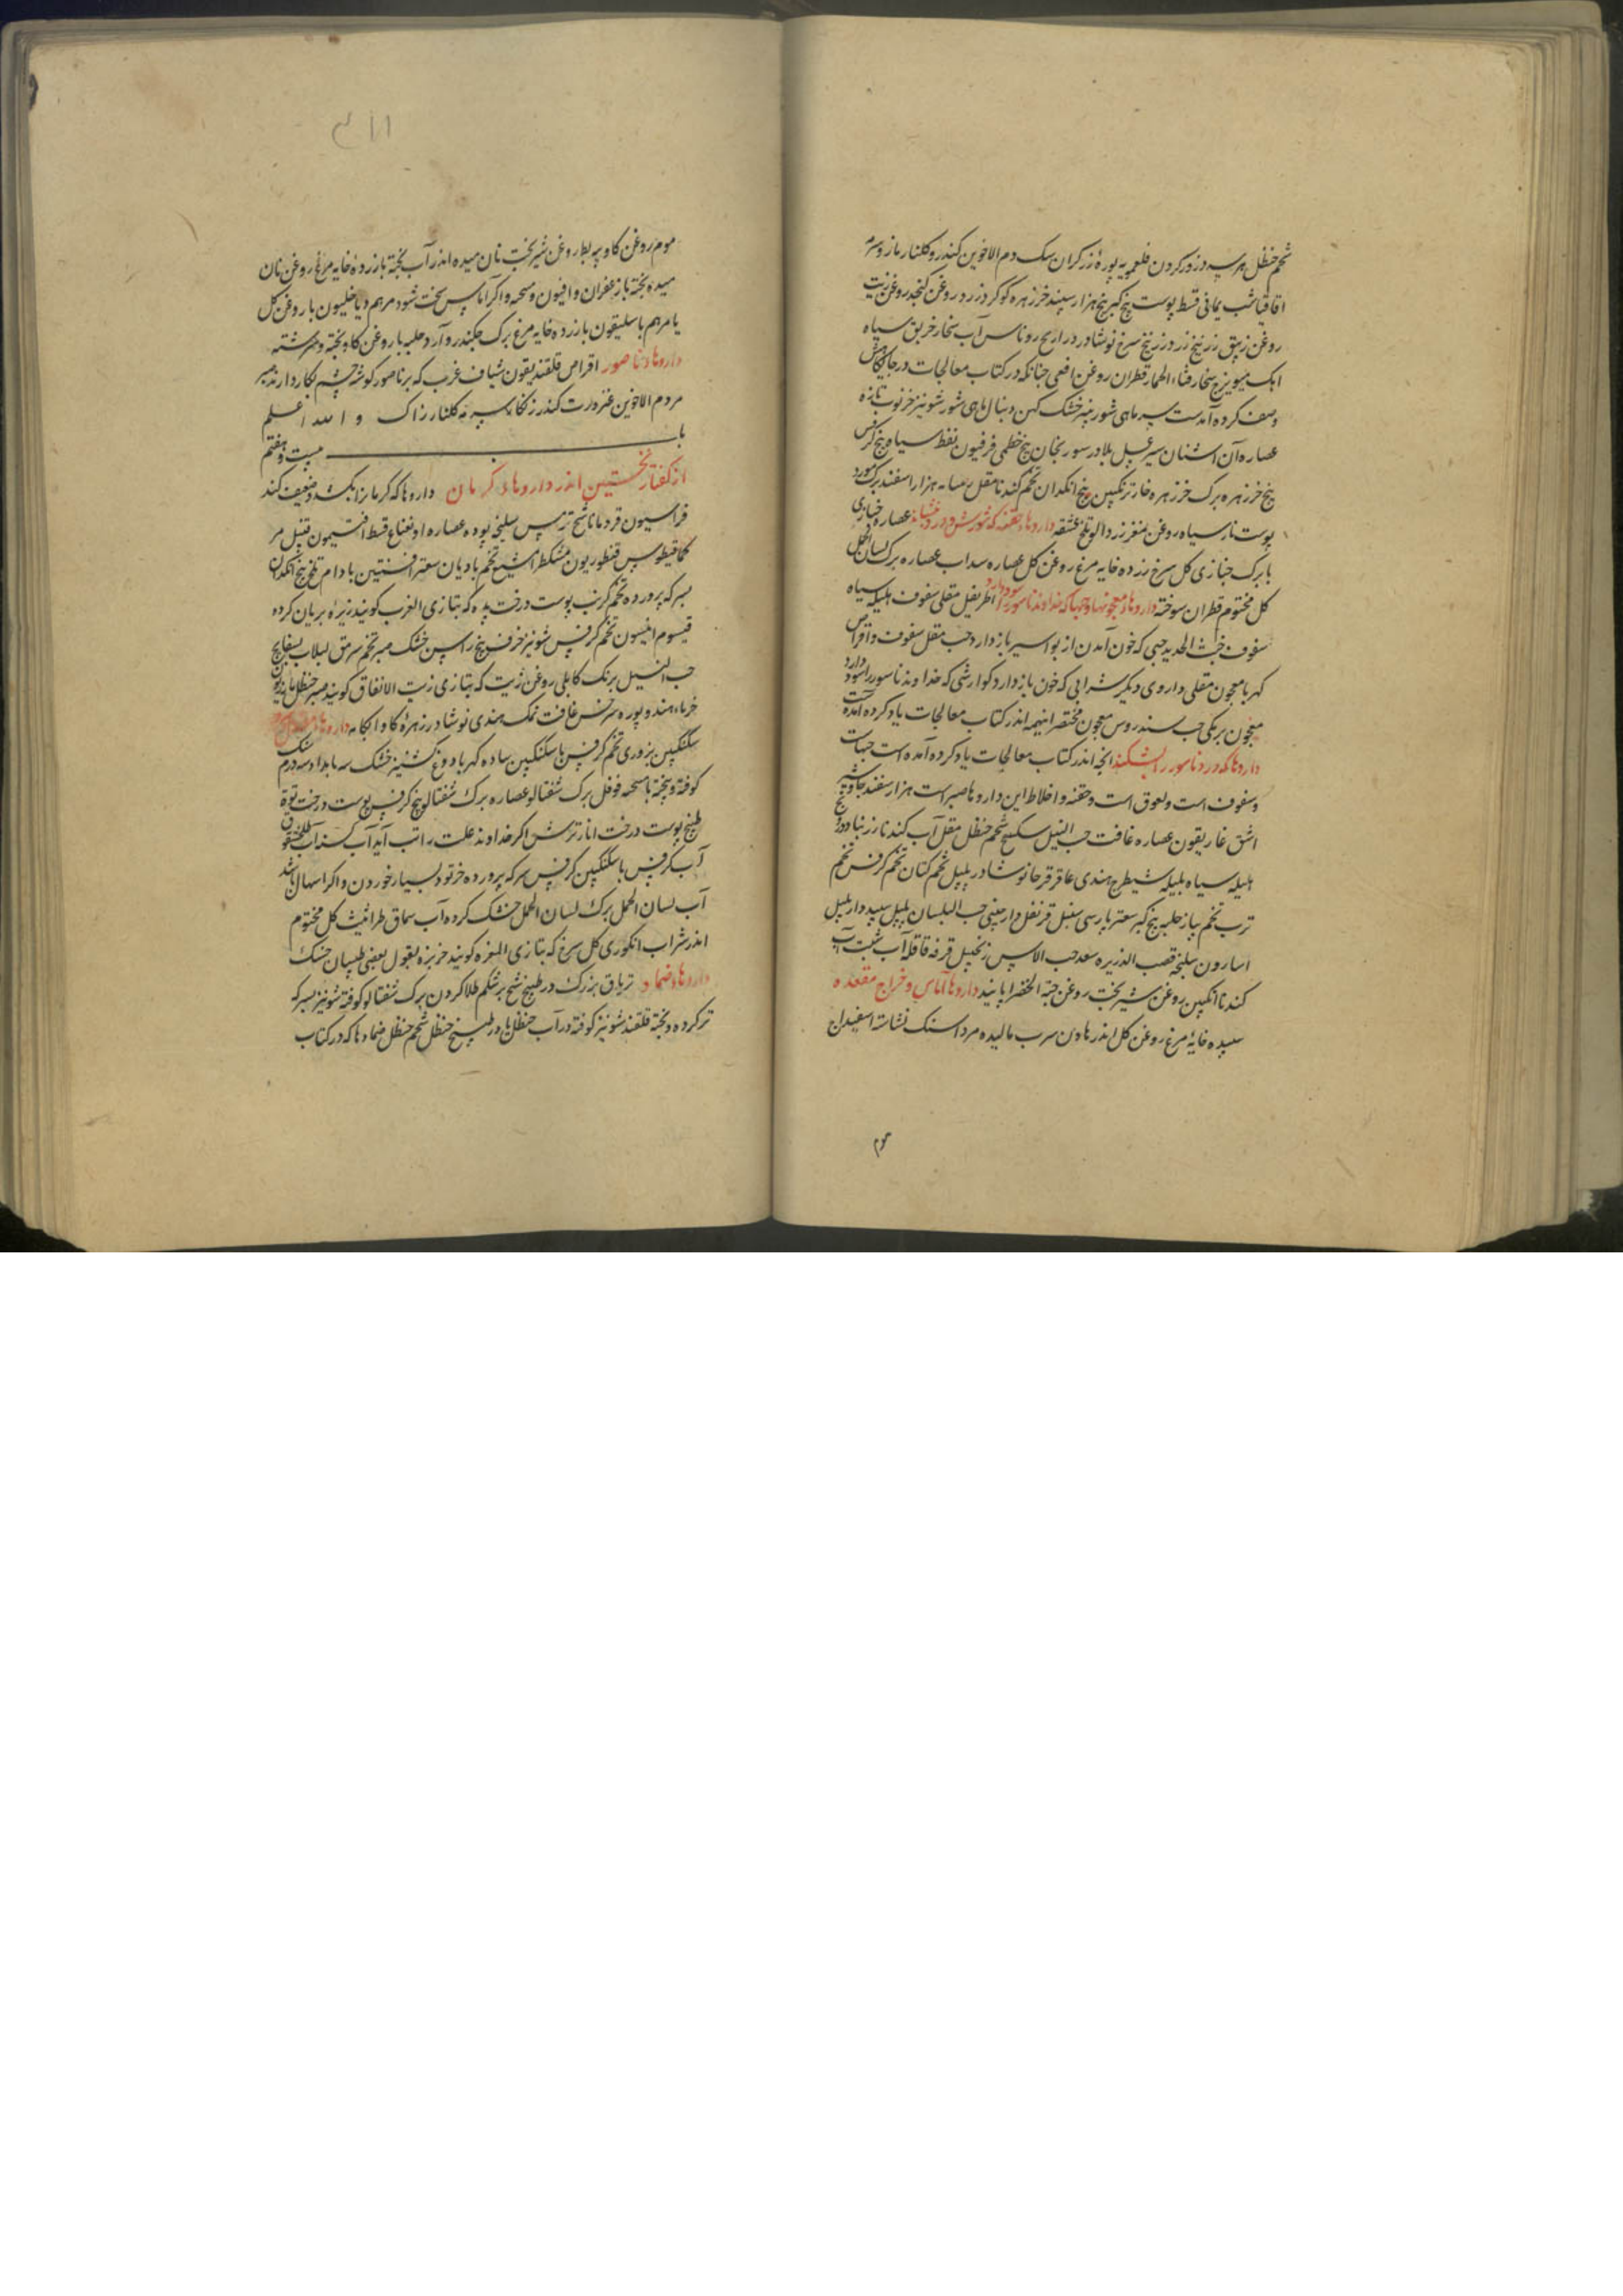 شحم حنظل هر سه در زور کردن قلعویه پوره زرکران سک دم الاخوین کندر و کلنار مازو سرمه
اقاقیا شب یمانی قسط پوست بیخ کبر بیخ هزار سپند خرزهره کوکرد زرد روغن کنجد روغن زیت
روغن زیبق زرنیخ زرد زرنیخ سرخ نوشادر دراریح روناس آب خربق سیاه
ابک میویزج قثاء الحمار قطران روغن افعی چنانکه در کتاب معالجات در جایکاهش
وصف کرده آمدست سر ماهی شور پنبه خشک کهن دنبال ماهی شور شونیز خرنوب تازه
عصاره آن اشنان سیر عسل بلادر سورنجان بیخ خطمی فرفیون نفط سیاه بیخ کرفس
بیخ خرزهره برک خرزهره خار ترنکبین بیخ انکدان تخم کندنا مقل هزار اسفند برک مورد
پوست مار سیاه روغن مغز زردالو تلخ داروهاء حقنه که شورش و درد بنشاند عصاره خبازی
با برک خبازی کل سرخ زرده خایه مرغ روغن کل عصاره سداب عصاره برک لسان الحمل
کل مختوم قطران سوخته داروهاء معجونها و حبها که خداوند ناسور را سود دارد اطریفل مقلی سفوف هلیله سیاه
سفوف خبث الحدید حبی که خون آمدن از بواسیر باز دارد حب مقل سفوف و اقراص
کهربا معجون مقلی داروی دیکر شرابی که خون باز دارد کوارشی که خداوند ناسور را سود دارد
معجون برمکی حب سندروس معجون مختصر اینهمه اندر کتاب معالجات یاد کرده آمده است
داروها که درد ناسور را بشکند انچه اندر کتاب معالجات یاد کرده آمده است حبهاست
و سفوف است و لعوق است و حقنه و اخلاط این داروها صبر است هزار اسفند جاوشیر
اشق غاریقون عصاره غافت حب النیل سکبینج شحم حنظل مقل آب کندنا زرنباد
هلیله سیاه بلیله شیطرج هندی عاقرقرحا نوشادر پلپل تخم کتان تخم کرفس تخم
ترب تخم پیاز حلبه بیخ کبر سعتر پارسی سنبل قرنفل دارچینی حب البلسان پلپل سپید دارپلپل
اسارون سلیخه قصب الذریره سعد حب الاس زنجبیل قرفه قاقله آب شبت آب
کندنا انکبین روغن شیربخت روغن حبة الخضرا پانید داروها آماس و خراج مقعده
سپیده خایه مرغ روغن کل اندر هاون سرب مالیده مرداسنک نشاسته اسفیداج
موم
۴۱۱
موم روغن کاو پیه بط روغن شیربخت نان میده اندر آب پخته با زرده خایه مرغ و روغن نان
میده پخته با زعفران و افیون و میپخته و اکر آماس سخت شود مرهم دیاخلیون با روغن کل
یا مرهم باسلیقون با زرده خایه مرغ برک چکندر و آرد حلبه با روغن کاو پخته و سرشته
داروهاء ناصور اقراص قلقندیقون شیاف غرب که بر ناصور کوشه چشم بکار دارند صبر
مر دم الاخوین عنزروت کندر زنکار سرمه کلنار زاک و الله اعلم
باب بیست و هفتم
از کفتار نخستین اندر داروهاء کرمان داروها که کرمان را بکشد و ضعیف کند
فراسیون قردمانا شیح ترمس سلیخه پوده عصاره او نعناع قسط افتیمون قنبیل مر
کمافیطوس قنطوریون مشکطرامشیع تخم بادیان سعتر افسنتین بادام تلخ بیخ انکدان
بسرکه پرورده تخم کرنب پوست درخت پده که بتازی الغرب کویند زیره بریان کرده
قیسوم انیسون تخم کرفس شونیز خرفه بیخ راسن خشک صبر تخم سرمق لبلاب بسفایج
حب النیل برنک کابلی روغن زیت که بتازی زیت الانفاق کویند صبر حنظل
خرماء هندو پوره سرخس غافت نمک هندی نوشادر زهره کاو آبکامه
سکنکبین بزوری تخم کرفس با سکنکبین ساده کهربا دوغ کشنیز خشک سه بامداد سه درم
کوفته و پخته با میپخته فوفل برک شفتالو عصاره برک شفتالو بیخ کرفس پوست درخت توت
طبیخ پوست درخت انار ترش اکر خداوند علت را تب آید آب کسنه آب
آب کرفس با سکنکبین کرفس سرکه پرورده خرتوت بسیار خوردن و اکر اسهال باشد
آب لسان الحمل برک لسان الحمل خشک کرده آب سماق طراثیث کل مختوم
اندر شراب انکوری کل سرخ که بتازی المغره کویند خربزه بقول بعضی طبیبان خسک
داروهاء ضماد تریاق بزرک در طبیخ شیح بر شکم طلا کردن برک شفتالو کوفته شونیز بسرکه
تر کرده و پخته قلقند شونیز کوفته در آب حنظل یا در طبیخ حنظل شحم حنظل ضمادها که در کتاب